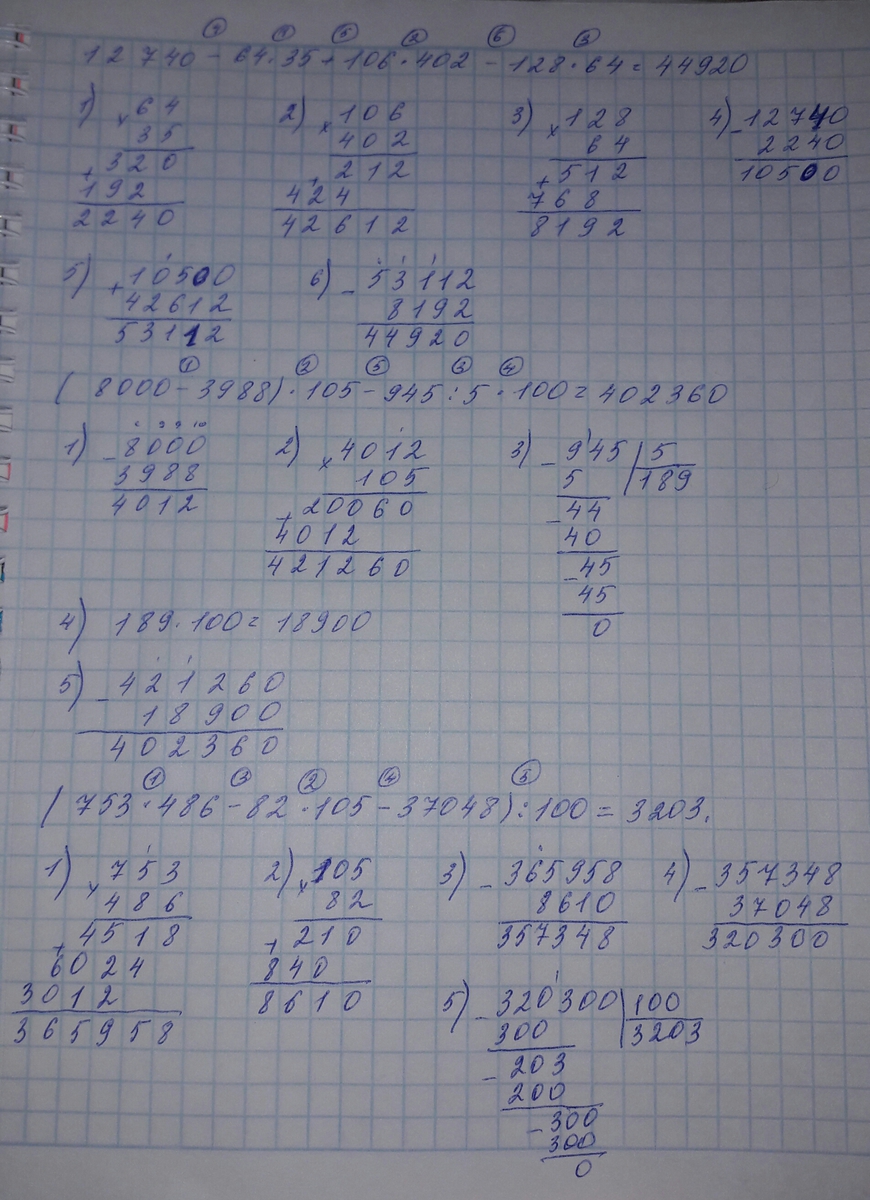 ④ ① ⑤ ② ⑥ ③
12740 - 64·35 + 106·402 - 128·64 = 44920
1) ×64 2) ×106 3) ×128 4) -12740
35 402 64 2240
+320 +212 +512 10500
192 424 768
2240 42612 8192
5) +10500 6) -53112
42612 8192
53112 44920
① ② ⑤ ③ ④
(8000 - 3988)·105 - 945:5·100 = 402360
1) -8000 2) ×4012 3) -945 5
3988 105 5 189
4012 +20060 -44
4012 40
421260 -45
45
4) 189·100 = 18900 0
5) -421260
18900
402360
① ③ ② ④ ⑤
(753·486 - 82·105 - 37048):100 = 3203.
1) ×753 2) ×105 3) -365958 4) -357348
486 82 8610 37048
+4518 +210 357348 320300
6024 840
3012 8610 5) -320300 100
365958 300 3203
-203
200
-300
300
0